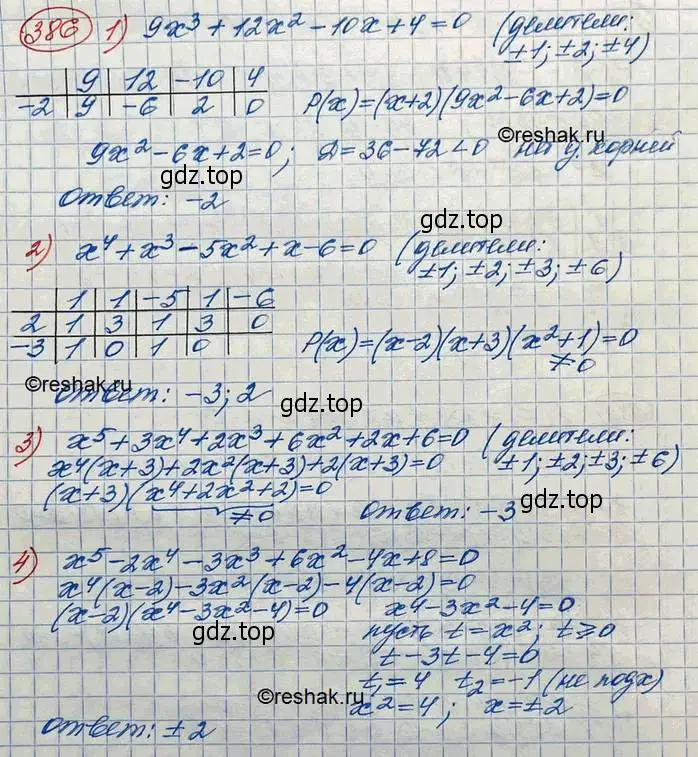 386 1) 9x³+12x²-10x+4=0 (делители: ±1; ±2; ±4)
9 12 -10 4
-2 9 -6 2 0
P(x)=(x+2)(9x²-6x+2)=0
©reshak.ru
9x²-6x+2=0; D=36-72<0 корней
gdz.top
ответ: -2
gdz.top
2) x⁴+x³-5x²+x-6=0 (делители: ±1; ±2; ±3; ±6)
1 1 -5 1 -6
2 1 3 1 3 0
-3 1 0 1 0
P(x)=(x-2)(x+3)(x²+1)=0
≠0
©reshak.ru
ответ: -3; 2
gdz.top
3) x⁵+3x⁴+2x³+6x²+2x+6=0 (делители: ±1; ±2; ±3; ±6)
x⁴(x+3)+2x²(x+3)+2(x+3)=0
(x+3)(x⁴+2x²+2)=0
≠0
gdz.top
ответ: -3
4) x⁵-2x⁴-3x³+6x²-4x+8=0
x⁴(x-2)-3x²(x-2)-4(x-2)=0
(x-2)(x⁴-3x²-4)=0
x⁴-3x²-4=0
gdz.top
пусть t=x²; t≥0
t-3t-4=0
t₁=4 t₂=-1 (не подх)
©reshak.ru
x²=4; x=±2
ответ: ±2
gdz.top